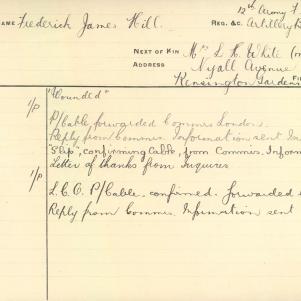 12th Army F
NAME Frederick James Hill. REG. &C. Artillery B
NEXT OF KIN Mrs L. H. White (m
ADDRESS Nyall Avenue
Kensington Gardens
"Wounded"
1/P P/Cable forwarded Commrs London.
Reply from Commrs. Information sent In
"Slip", confirming Cable, from Commrs. Inform
Letter of thanks from Inquirer
1/P L.C.O. P/Cable. confirmed. forwarded
Reply from Commrs. Information sent